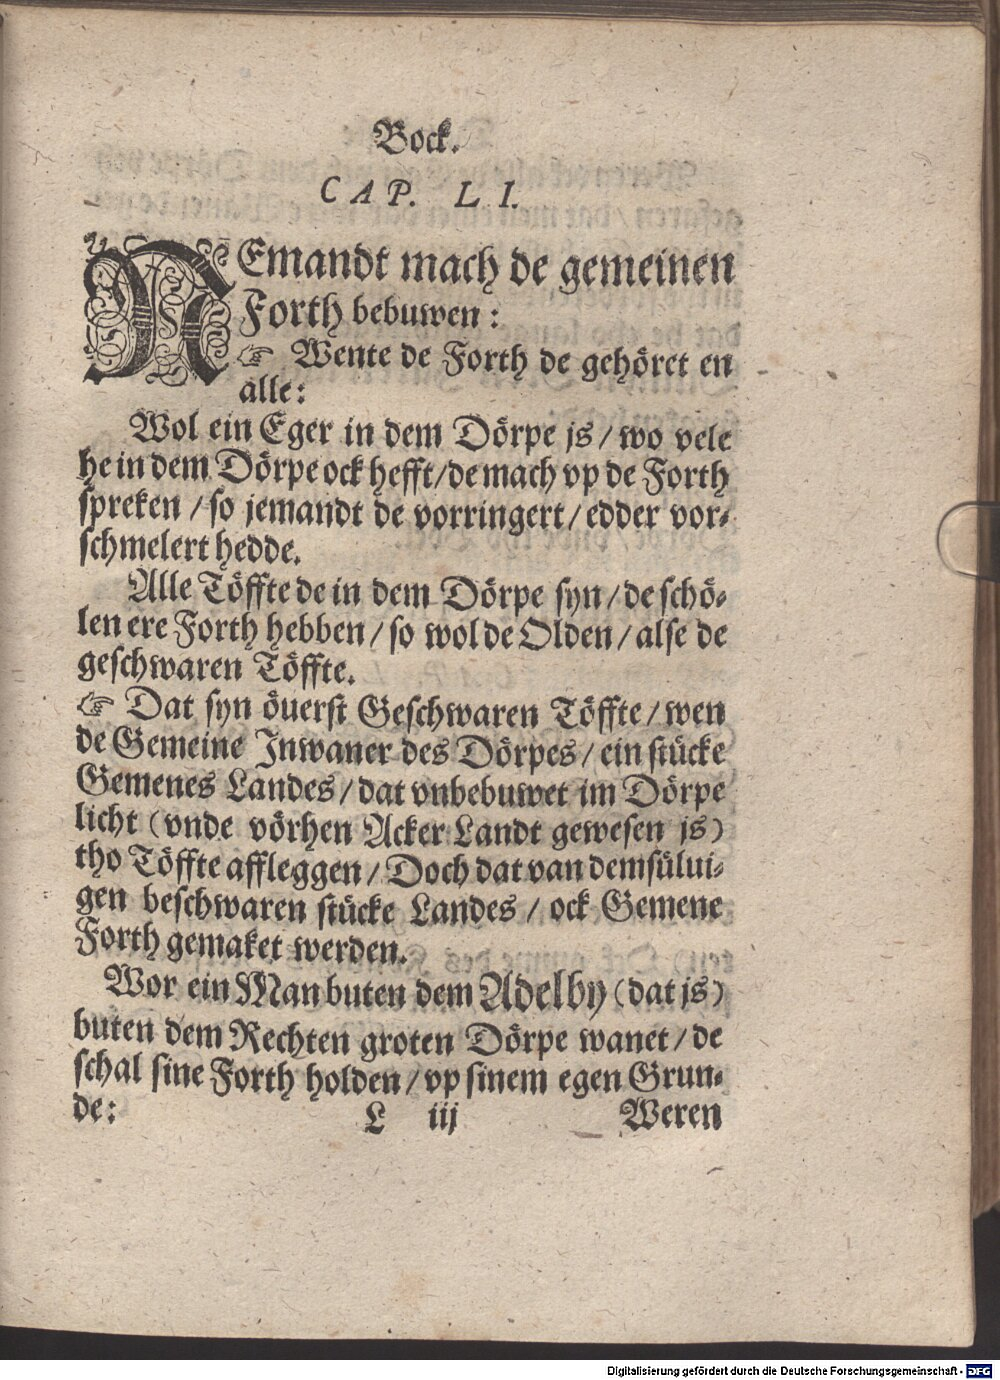 Bock.
CAP. LI.
NEmandt mach de gemeinen
Forth bebuwen:
☞ Wente de Forth de gehöret en
alle:
Wol ein Eger in dem Dörpe js/ wo vele
he in dem Dörpe ock hefft/ de mach vp de Forth
spreken/ so jemandt de vorringert/ edder vor-
schmelert hedde.
Alle Töffte de in dem Dörpe syn/ de schö-
len ere Forth hebben/ so wol de Olden/ alse de
geschwaren Töffte.
☞ Dat syn öuerst Geschwaren Töffte/ wen
de Gemeine Inwaner des Dörpes/ ein stücke
Gemenes Landes/ dat vnbebuwet im Dörpe
licht (vnde vörhen Acker Landt gewesen js)
tho Töffte affleggen/ Doch dat van demsülui-
gen beschwaren stücke Landes/ ock Gemene
Forth gemaket werden.
Wor ein Man buten dem Adelby (dat js)
buten dem Rechten groten Dörpe wanet/ de
schal sine Forth holden/ vp sinem egen Grun-
de: L iij Weren
Digitalisierung gefördert durch die Deutsche Forschungsgemeinschaft - DFG